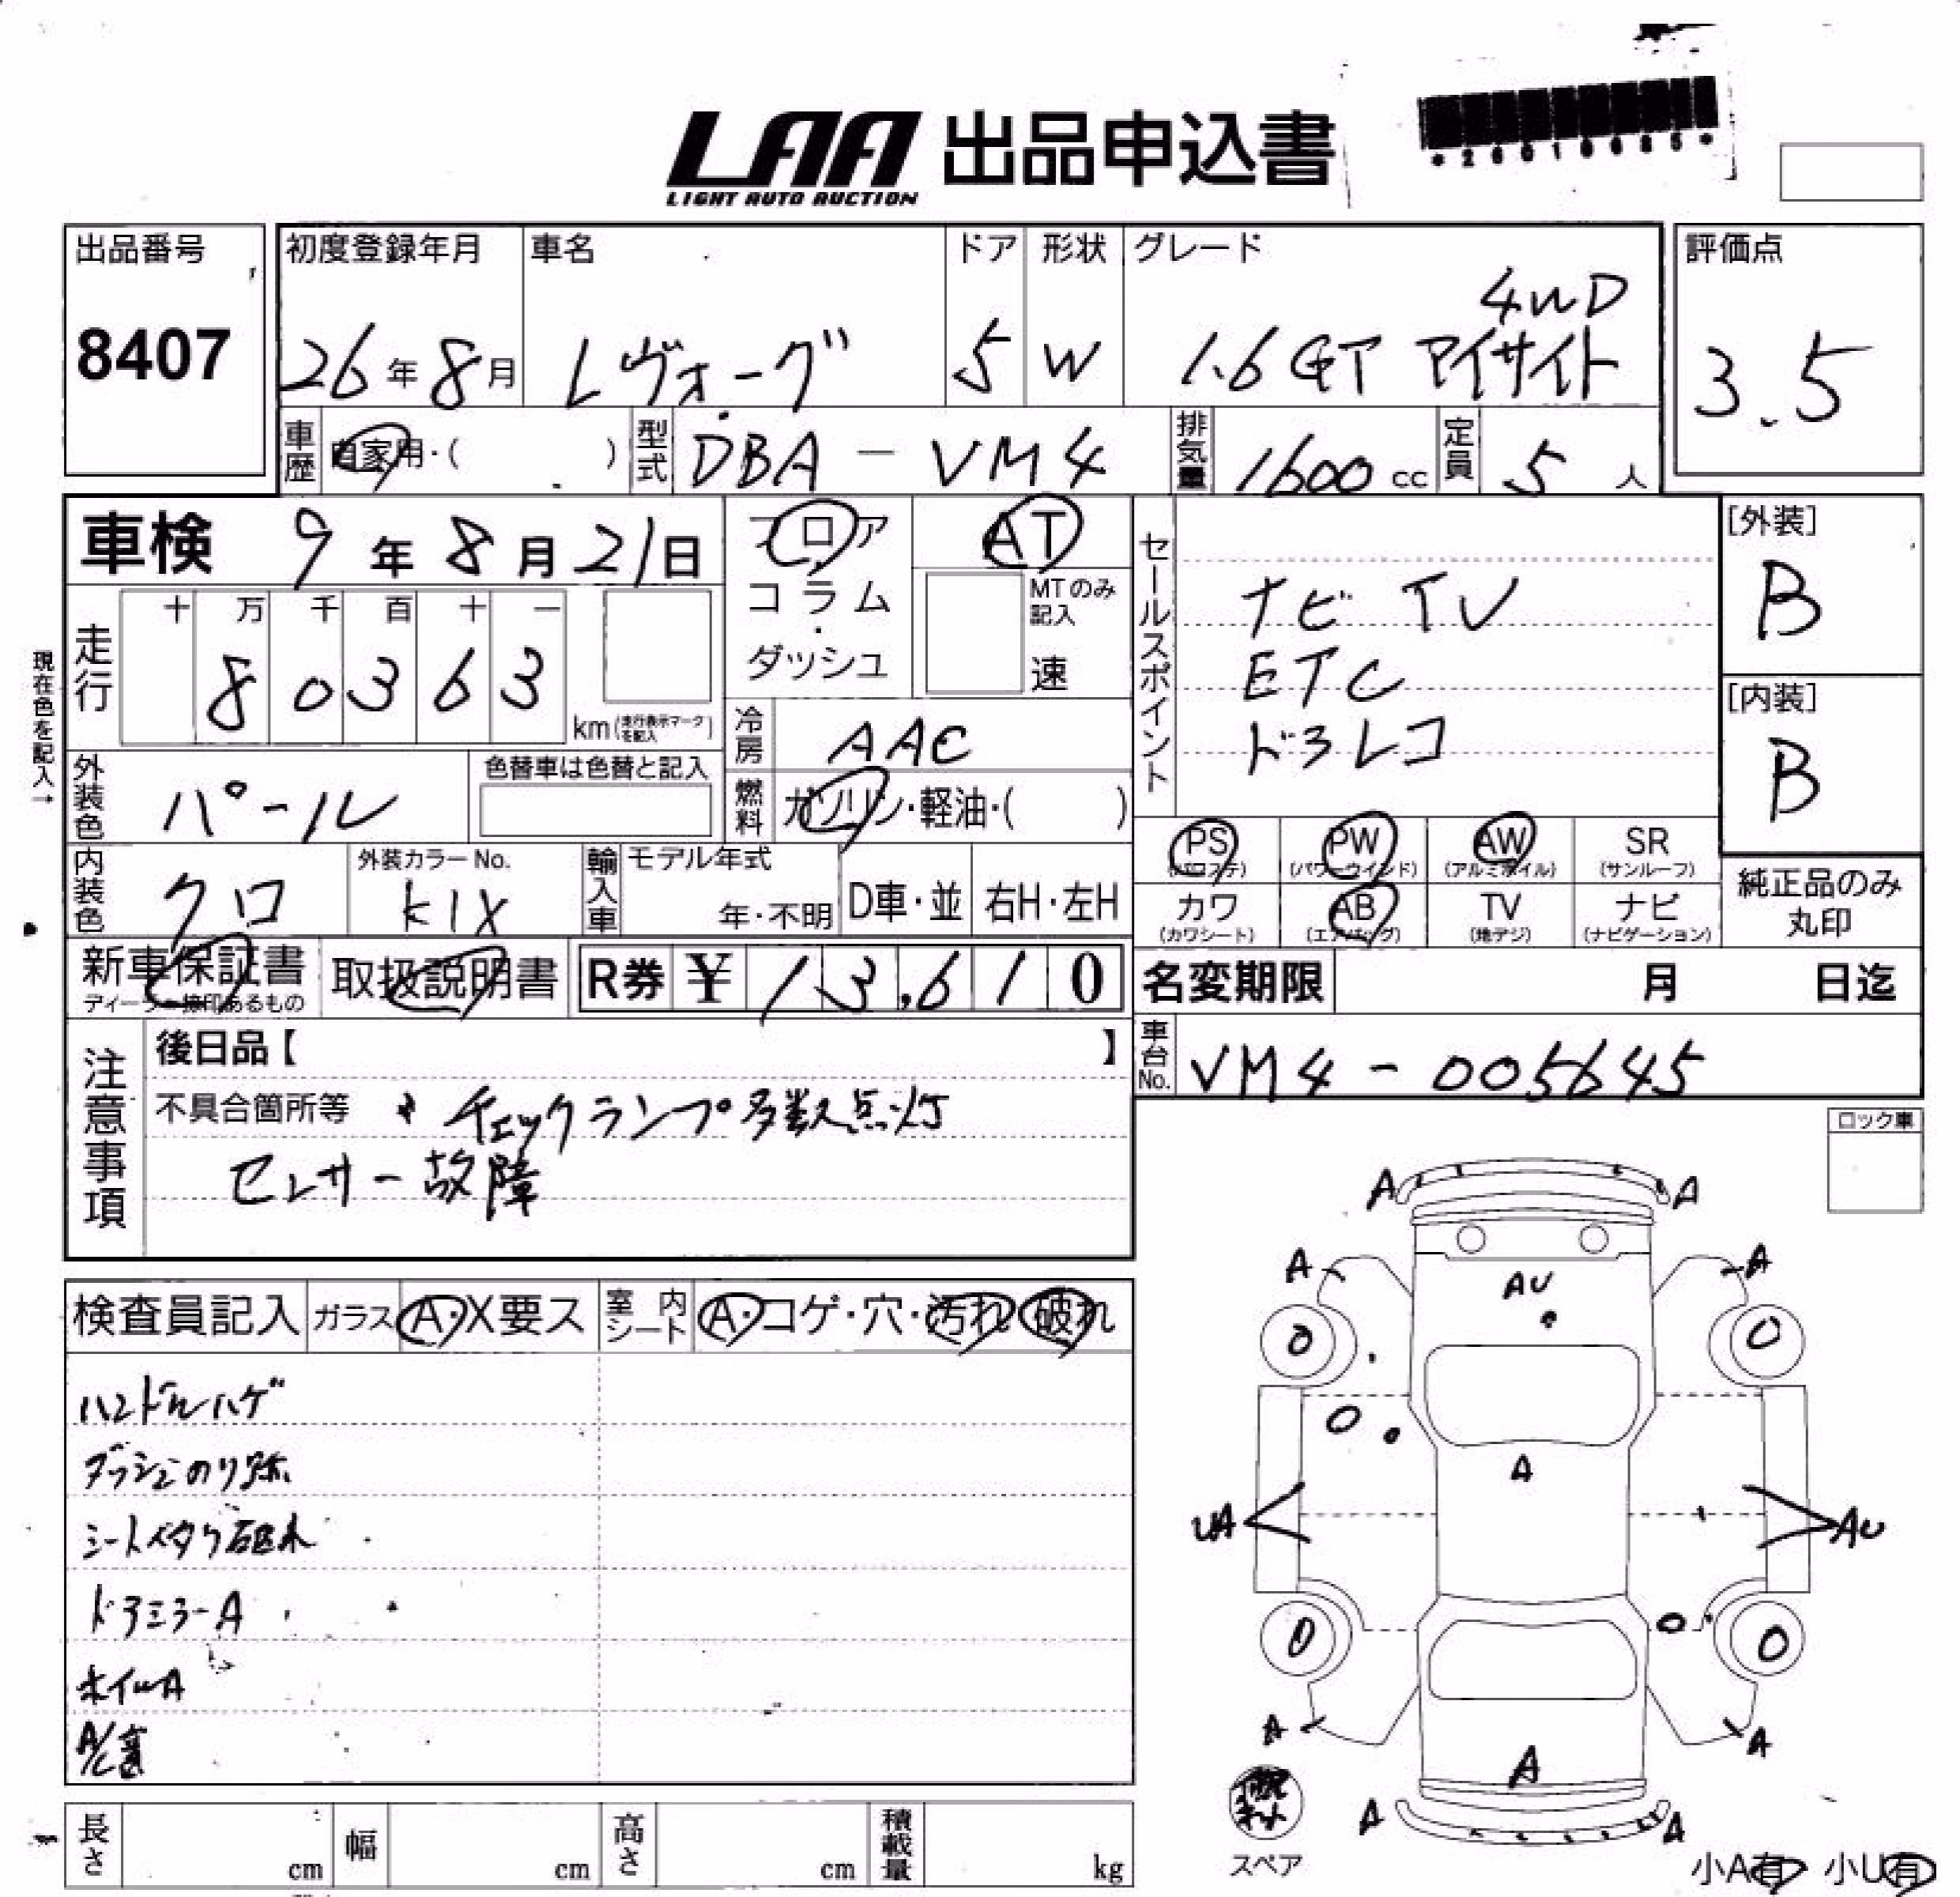 LAA 出品申込書
LIGHT AUTO AUCTION
*26010685*
出品番号
8407
初度登録年月
26年8月
車名
レヴォーグ
ドア
5
形状
W
グレード
4WD
1.6GT アイサイト
評価点
3.5
車歴 自家用・( )
型式 DBA-VM4
排気量 1600cc
定員 5人
車検 9年8月21日
フロア
コラム
・
ダッシュ
AT
MTのみ
記入
速
現在色を記入→
走行
十 万 千 百 十 一
8 0 3 6 3
km(走行表示マークを記入)
冷房 AAC
外装色 パール
色替車は色替と記入
燃料 ガソリン・軽油・( )
内装色 クロ
外装カラーNo.
K1X
輸入車
モデル年式
年・不明
D車・並
右H・左H
セールスポイント
ナビ TV
ETC
ドラレコ
[外装]
B
[内装]
B
PS
(パワステ)
PW
(パワーウインド)
AW
(アルミホイル)
SR
(サンルーフ)
カワ
(カワシート)
AB
(エアバッグ)
TV
(地デジ)
ナビ
(ナビゲーション)
純正品のみ
丸印
新車保証書
ディーラー捺印あるもの
取扱説明書
R券 ¥13,610
名変期限 月 日迄
車台No. VM4-005645
注意事項
後日品【 】
不具合箇所等 チェックランプ多数点灯
センサー故障
ロック車
検査員記入
ガラス A・X要ス
室内シート A・コゲ・穴・汚れ 破れ
ハンドルハゲ
ダッシュのり跡
シートベタつ破れ
ドアミラーA
ホイルA
A/C
A
A
A
A
AU
O
O
O
A
UA
AU
O
O
O
A
A
A
A
A
スペア
小A有 小U有
長さ cm
幅 cm
高さ cm
積載量 kg